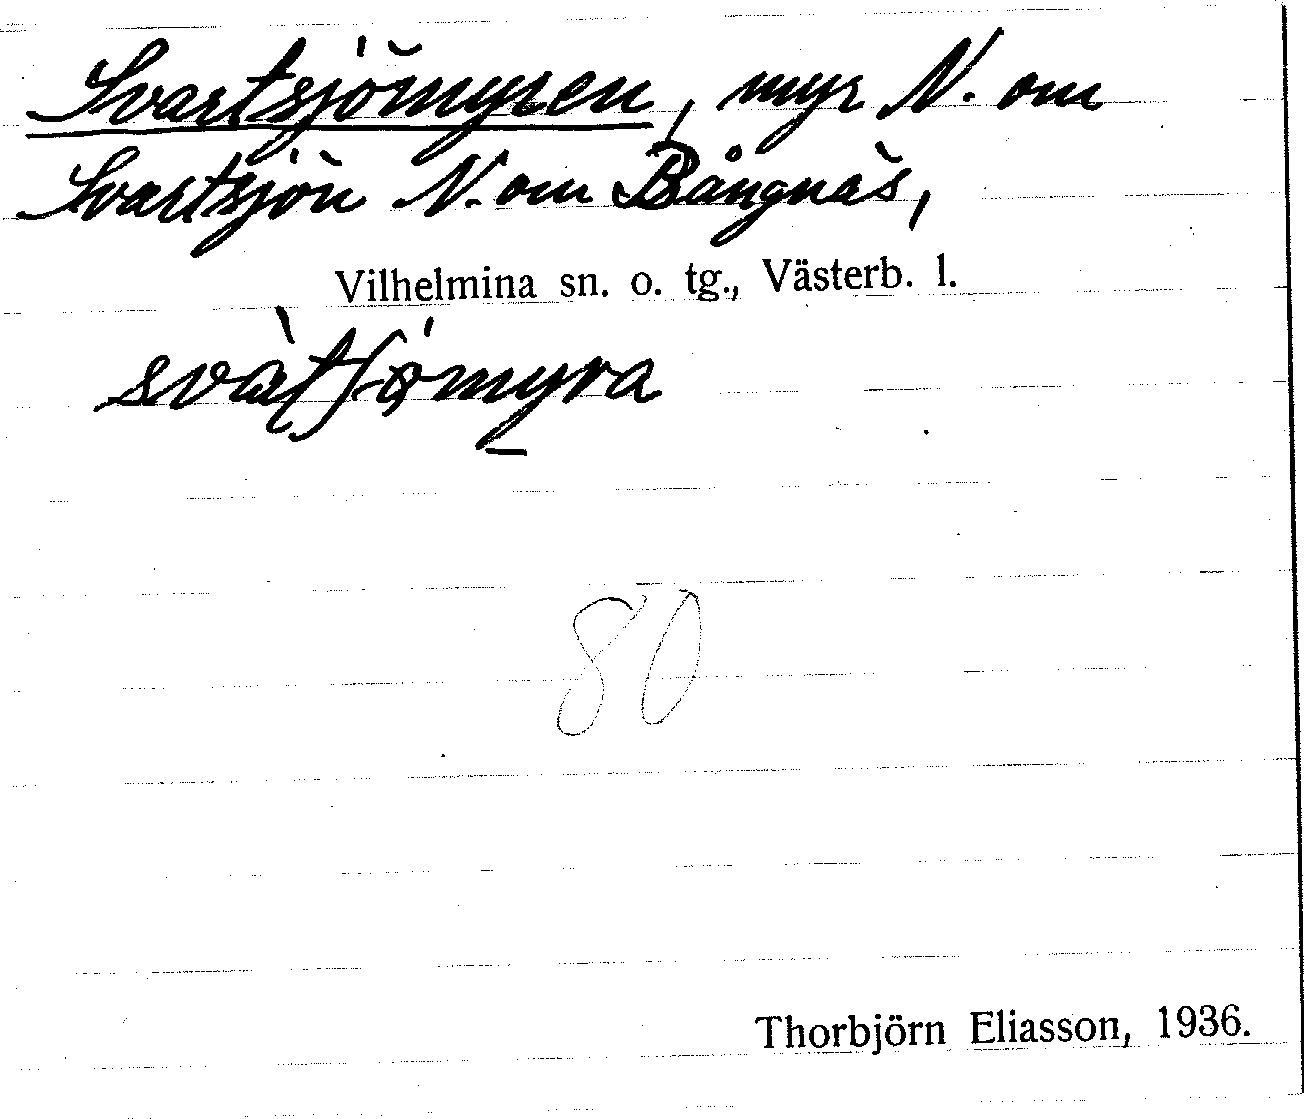 Svartsjömyren, myr N. om
Svartsjön N. om Bångnäs,
Vilhelmina sn. o. tg., Västerb. l.
svàtʃømyra
80
Thorbjörn Eliasson, 1936.